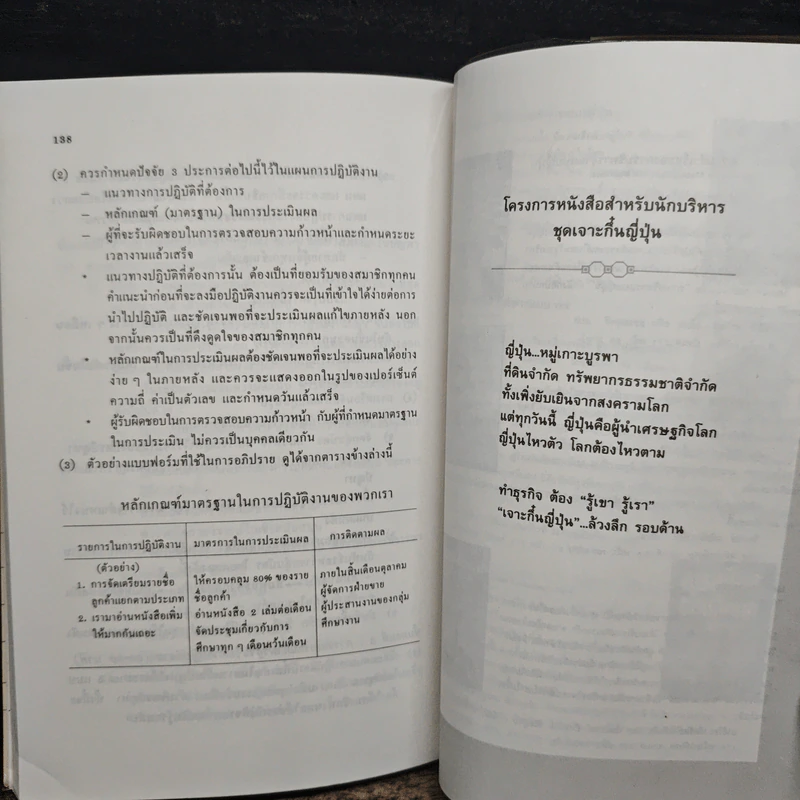 138
(2) ควรกำหนดปัจจัย 3 ประการต่อไปนี้ไว้ในแผนการปฏิบัติงาน
– แนวทางการปฏิบัติที่ต้องการ
– หลักเกณฑ์ (มาตรฐาน) ในการประเมินผล
– ผู้ที่จะรับผิดชอบในการตรวจสอบความก้าวหน้าและกำหนดระยะ
เวลางานแล้วเสร็จ
* แนวทางปฏิบัติที่ต้องการนั้น ต้องเป็นที่ยอมรับของสมาชิกทุกคน
คำแนะนำก่อนที่จะลงมือปฏิบัติงานควรจะเป็นที่เข้าใจได้ง่ายต่อการ
นำไปปฏิบัติ และชัดเจนพอที่จะประเมินผลแก้ไขภายหลัง นอก
จากนั้นควรเป็นที่ดึงดูดใจของสมาชิกทุกคน
* หลักเกณฑ์ในการประเมินผลต้องชัดเจนพอที่จะประเมินผลได้อย่าง
ง่าย ๆ ในภายหลัง และควรจะแสดงออกในรูปของเปอร์เซ็นต์
ความถี่ ค่าเป็นตัวเลข และกำหนดวันแล้วเสร็จ
* ผู้รับผิดชอบในการตรวจสอบความก้าวหน้า กับผู้ที่กำหนดมาตรฐาน
ในการประเมิน ไม่ควรเป็นบุคคลเดียวกัน
(3) ตัวอย่างแบบฟอร์มที่ใช้ในการอภิปราย ดูได้จากตารางข้างล่างนี้
หลักเกณฑ์มาตรฐานในการปฏิบัติงานของพวกเรา
รายการในการปฏิบัติงาน มาตรการในการประเมินผล การติดตามผล
(ตัวอย่าง)
1. การจัดเตรียมรายชื่อ
ลูกค้าแยกตามประเภท
2. เรามาอ่านหนังสือเพิ่ม
ให้มากกันเถอะ
ให้ครอบคลุม 80% ของราย
ชื่อลูกค้า
อ่านหนังสือ 2 เล่มต่อเดือน
จัดประชุมเกี่ยวกับการ
ศึกษาทุก ๆ เดือนเว้นเดือน
ภายในสิ้นเดือนตุลาคม
ผู้จัดการฝ่ายขาย
ผู้ประสานงานของกลุ่ม
ศึกษางาน
โครงการหนังสือสำหรับนักบริหาร
ชุดเจาะกึ๋นญี่ปุ่น
ญี่ปุ่น...หมู่เกาะบูรพา
ที่ดินจำกัด ทรัพยากรธรรมชาติจำกัด
ทั้งเพิ่งยับเยินจากสงครามโลก
แต่ทุกวันนี้ ญี่ปุ่นคือผู้นำเศรษฐกิจโลก
ญี่ปุ่นไหวตัว โลกต้องไหวตาม
ทำธุรกิจ ต้อง “รู้เขา รู้เรา”
“เจาะกึ๋นญี่ปุ่น”...ล้วงลึก รอบด้าน